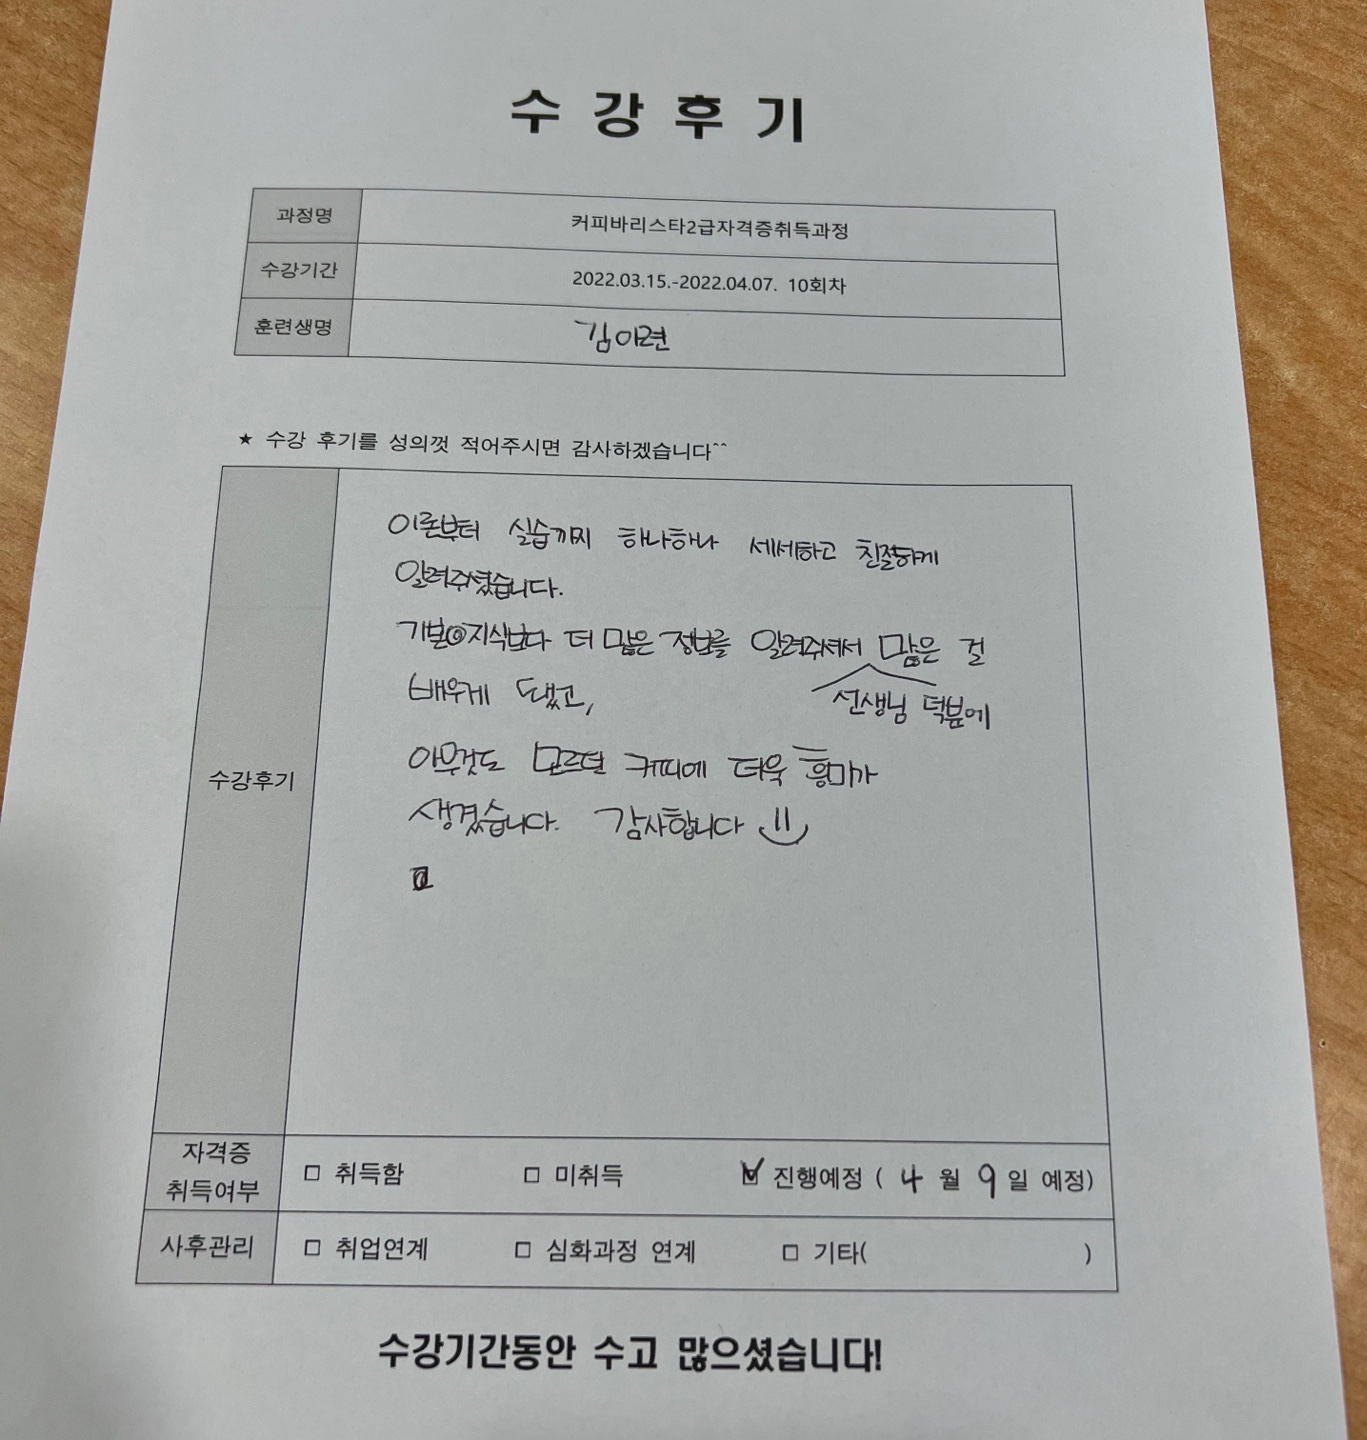 수강후기
과정명 커피바리스타2급자격증취득과정
수강기간 2022.03.15.-2022.04.07. 10회차
훈련생명 김이련
★ 수강 후기를 성의껏 적어주시면 감사하겠습니다^^
수강후기
이론부터 실습까지 하나하나 세세하고 친절하게
알려주셨습니다.
기본지식보다 더 많은 정보를 알려주셔서 많은 걸
배우게 됐고,
선생님 덕분에
아무것도 모르던 커피에 더욱 흥미가
생겼습니다. 감사합니다
자격증
취득여부
□ 취득함 □ 미취득 ☑ 진행예정 ( 4 월 9 일 예정)
사후관리 □ 취업연계 □ 심화과정 연계 □ 기타( )
수강기간동안 수고 많으셨습니다!